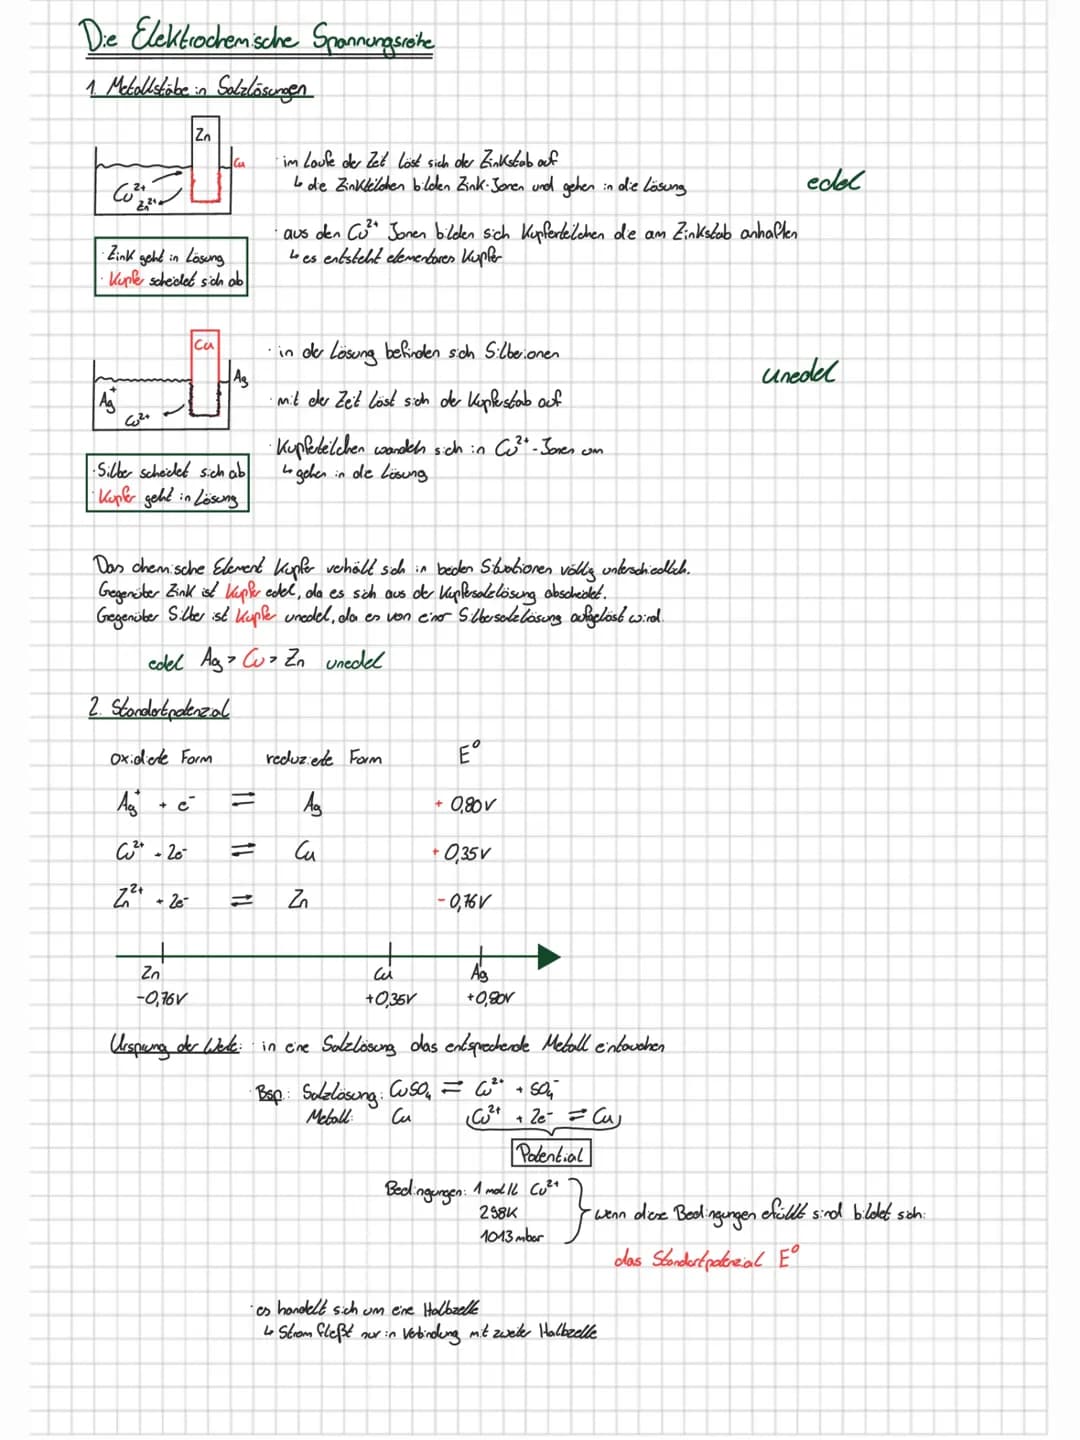 Die Elektrochemische Spannungsreihe
1. Metallstäbe in Salzlösungen
Zn
Cu
Cu²⁺
Zn²⁺
· im Laufe der Zeit löst sich der Zinkstab auf
↳ die Zinkteilchen bilden Zink-Ionen und gehen in die Lösung
edel
· aus den Cu²⁺ Ionen bilden sich Kupferteilchen die am Zinkstab anhaften
↳ es entsteht elementares Kupfer
· Zink geht in Lösung
· Kupfer scheidet sich ab
Cu
Ag
Ag⁺
Cu²⁺
· in der Lösung befinden sich Silberionen
unedel
· mit der Zeit löst sich der Kupferstab auf
· Kupferteilchen wandeln sich in Cu²⁺-Ionen um
↳ gehen in die Lösung
· Silber scheidet sich ab
· Kupfer geht in Lösung
Das chemische Element Kupfer verhält sich in beiden Situationen völlig unterschiedlich.
Gegenüber Zink ist Kupfer edel, da es sich aus der Kupfersalzlösung abscheidet.
Gegenüber Silber ist Kupfer unedel, da es von einer Silbersalzlösung aufgelöst wird.
edel Ag > Cu > Zn unedel
2. Standartpotenzial
oxidierte Form reduzierte Form E⁰
Ag⁺ + e⁻ ⇌ Ag + 0,80V
Cu²⁺ + 2e⁻ ⇌ Cu + 0,35V
Zn²⁺ + 2e⁻ ⇌ Zn - 0,76V
Zn Cu Ag
-0,76V +0,35V +0,80V
Ursprung der Werte: · in eine Salzlösung das entsprechende Metall eintauchen
Bsp.: Salzlösung: CuSO₄ ⇌ Cu²⁺ + SO₄⁻
Metall: Cu (Cu²⁺ + 2e⁻ ⇌ Cu)
Potential
Bedingungen: 1 mol/L Cu²⁺
298K
1013 mbar
wenn diese Bedingungen erfüllt sind bildet sich:
das Standartpotenzial E⁰
· es handelt sich um eine Halbzelle
↳ Strom fließt nur in Verbindung mit zweiter Halbzelle